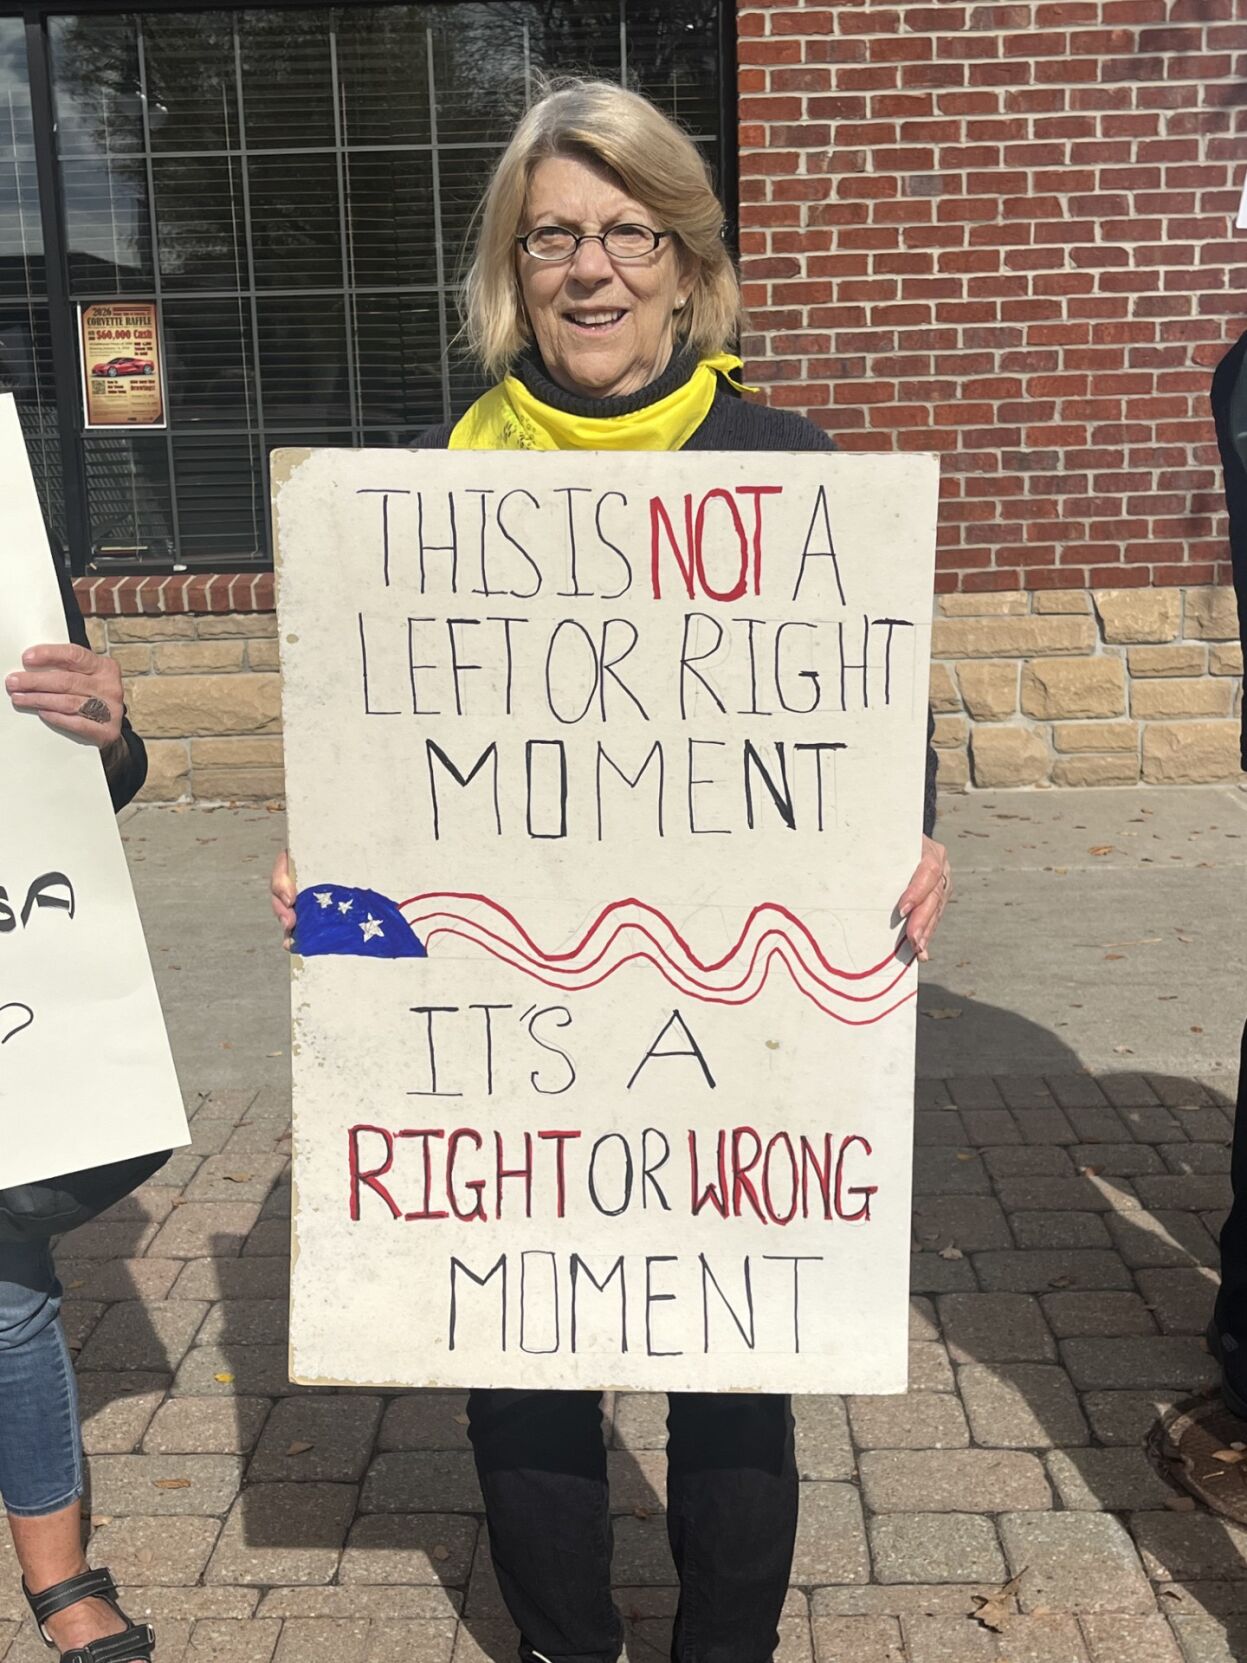 2026
CORVETTE RAFFLE
$60,000 Cash
THIS IS NOT A
LEFT OR RIGHT
MOMENT
IT'S A
RIGHT OR WRONG
MOMENT
SA
?